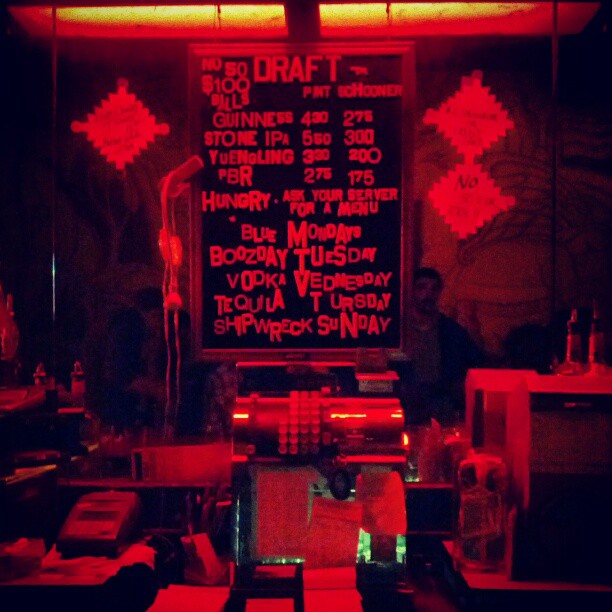 NO 50
$100
BILLS
DRAFT
PINT SCHOONER
GUINNESS 450 275
STONE IPA 550 300
YUENGLING 350 200
PBR 275 175
HUNGRY. ASK YOUR SERVER
FOR A MENU
BLUE MONDAYS
BOOZDAY TUESDAY
VODKA VEDNESDAY
TEQUILA T URSDAY
SHIPWRECK SUNDAY
No